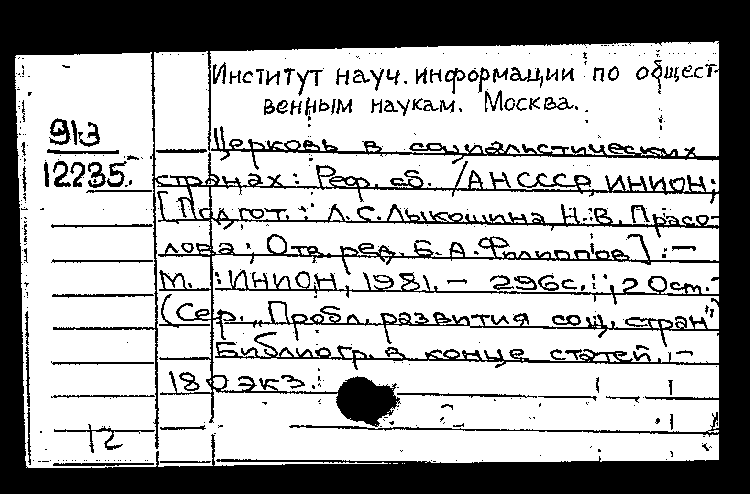 Институт науч. информации по общест-
венным наукам. Москва.
913
12235.
Церковь в социалистических
странах: Реф. сб. /АН СССР, ИНИОН;
[Подгот.: Л.С.Лыкошина, Н.В. Прасо-
лова; Отв. ред. Б.А.Филиппов]. —
М. : ИНИОН, 1981. — 296с.; 20см. —
(Сер. „Пробл. развития соц. стран")
Библиогр. в конце статей. —
180 экз.
12